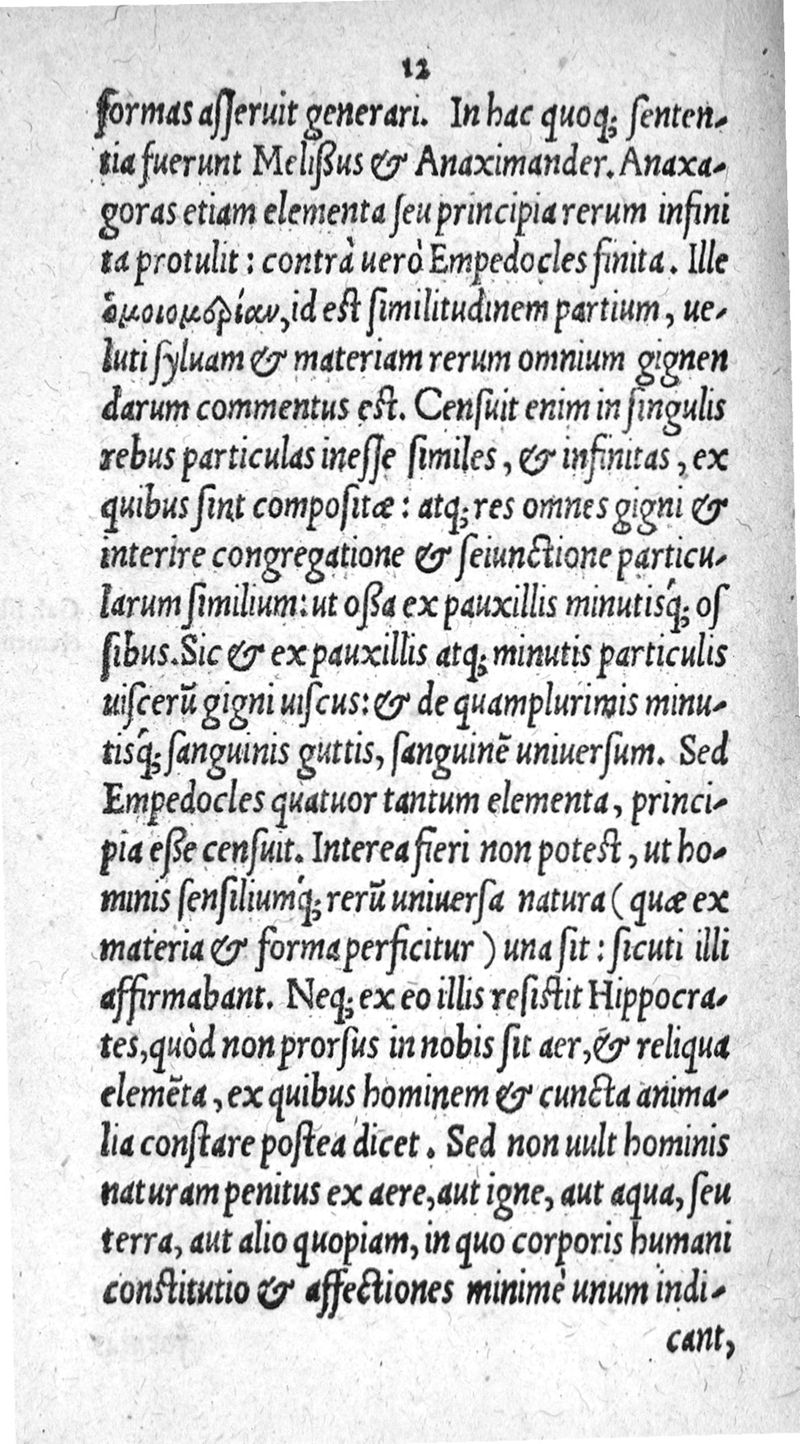 12
formas aſſeruit generari. In hac quoq; ſenten-
tia fuerunt Melißus & Anaximander. Anaxa-
goras etiam elementa ſeu principia rerum infini
ta protulit: contrà uerò Empedocles finita. Ille
ὁμοιομερίαν, id eſt ſimilitudinem partium, ue-
luti ſyluam & materiam rerum omnium gignen
darum commentus eſt. Cenſuit enim in ſingulis
rebus particulas ineſſe ſimiles, & infinitas, ex
quibus ſint compoſitæ: atq; res omnes gigni &
interire congregatione & ſeiunctione particu-
larum ſimilium: ut oßa ex pauxillis minutisq́; oſ
ſibus. Sic & ex pauxillis atq; minutis particulis
uiſcerũ gigni uiſcus: & de quamplurimis minu-
tisq́; ſanguinis guttis, ſanguinẽ uniuerſum. Sed
Empedocles quatuor tantum elementa, princi-
pia eße cenſuit. Interea fieri non poteſt, ut ho-
minis ſenſiliumq́; rerũ uniuerſa natura (quæ ex
materia & forma perficitur) una ſit: ſicuti illi
affirmabant. Neq; ex eo illis reſiſtit Hippocra-
tes, quòd non prorſus in nobis ſit aer, & reliqua
elemẽta, ex quibus hominem & cuncta anima-
lia conſtare poſtea dicet. Sed non uult hominis
naturam penitus ex aere, aut igne, aut aqua, ſeu
terra, aut alio quopiam, in quo corporis humani
conſtitutio & affectiones minimè unum indi-
cant,